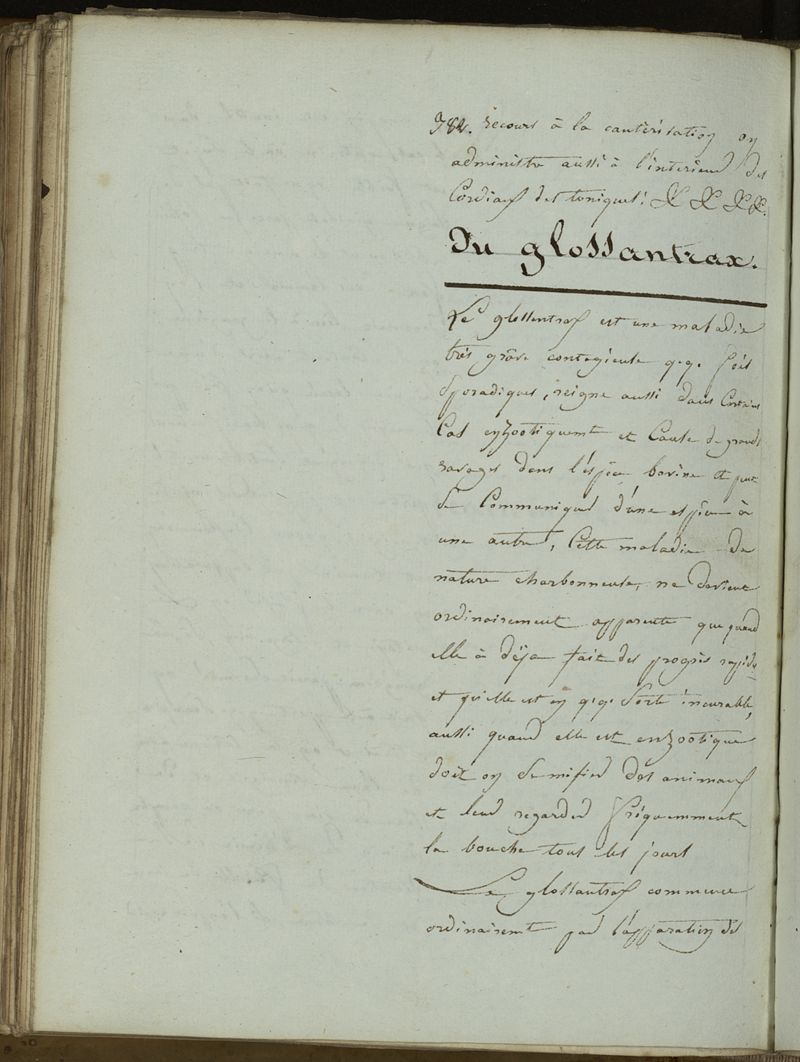 382. recours à la cautérisation on
administre aussi à l'interieur des
Cordiax des toniques.
Du glossantrax.
Le glossentrax est une maladie
très grâve contagieuse q.q. fois
Sporadiques, reigne aussi dans Certains
Cas enzootiquemt et Cause de grands
ravages dans l'espèce bovine et peut
Se Communiquer d'une espèce à
une autre, Cette maladie de
nature charbonneuse, ne devient
ordinairement apparente que quand
elle à déja fait des progrès rapides
et qu'elle est en q.q. Sorte incurable,
aussi quand elle est enzootique
doit on Se mifier des animax
et leur regarder friquemment
la bouche tous les jours
Le glossantrax commence
ordinairemt par l'apparation des